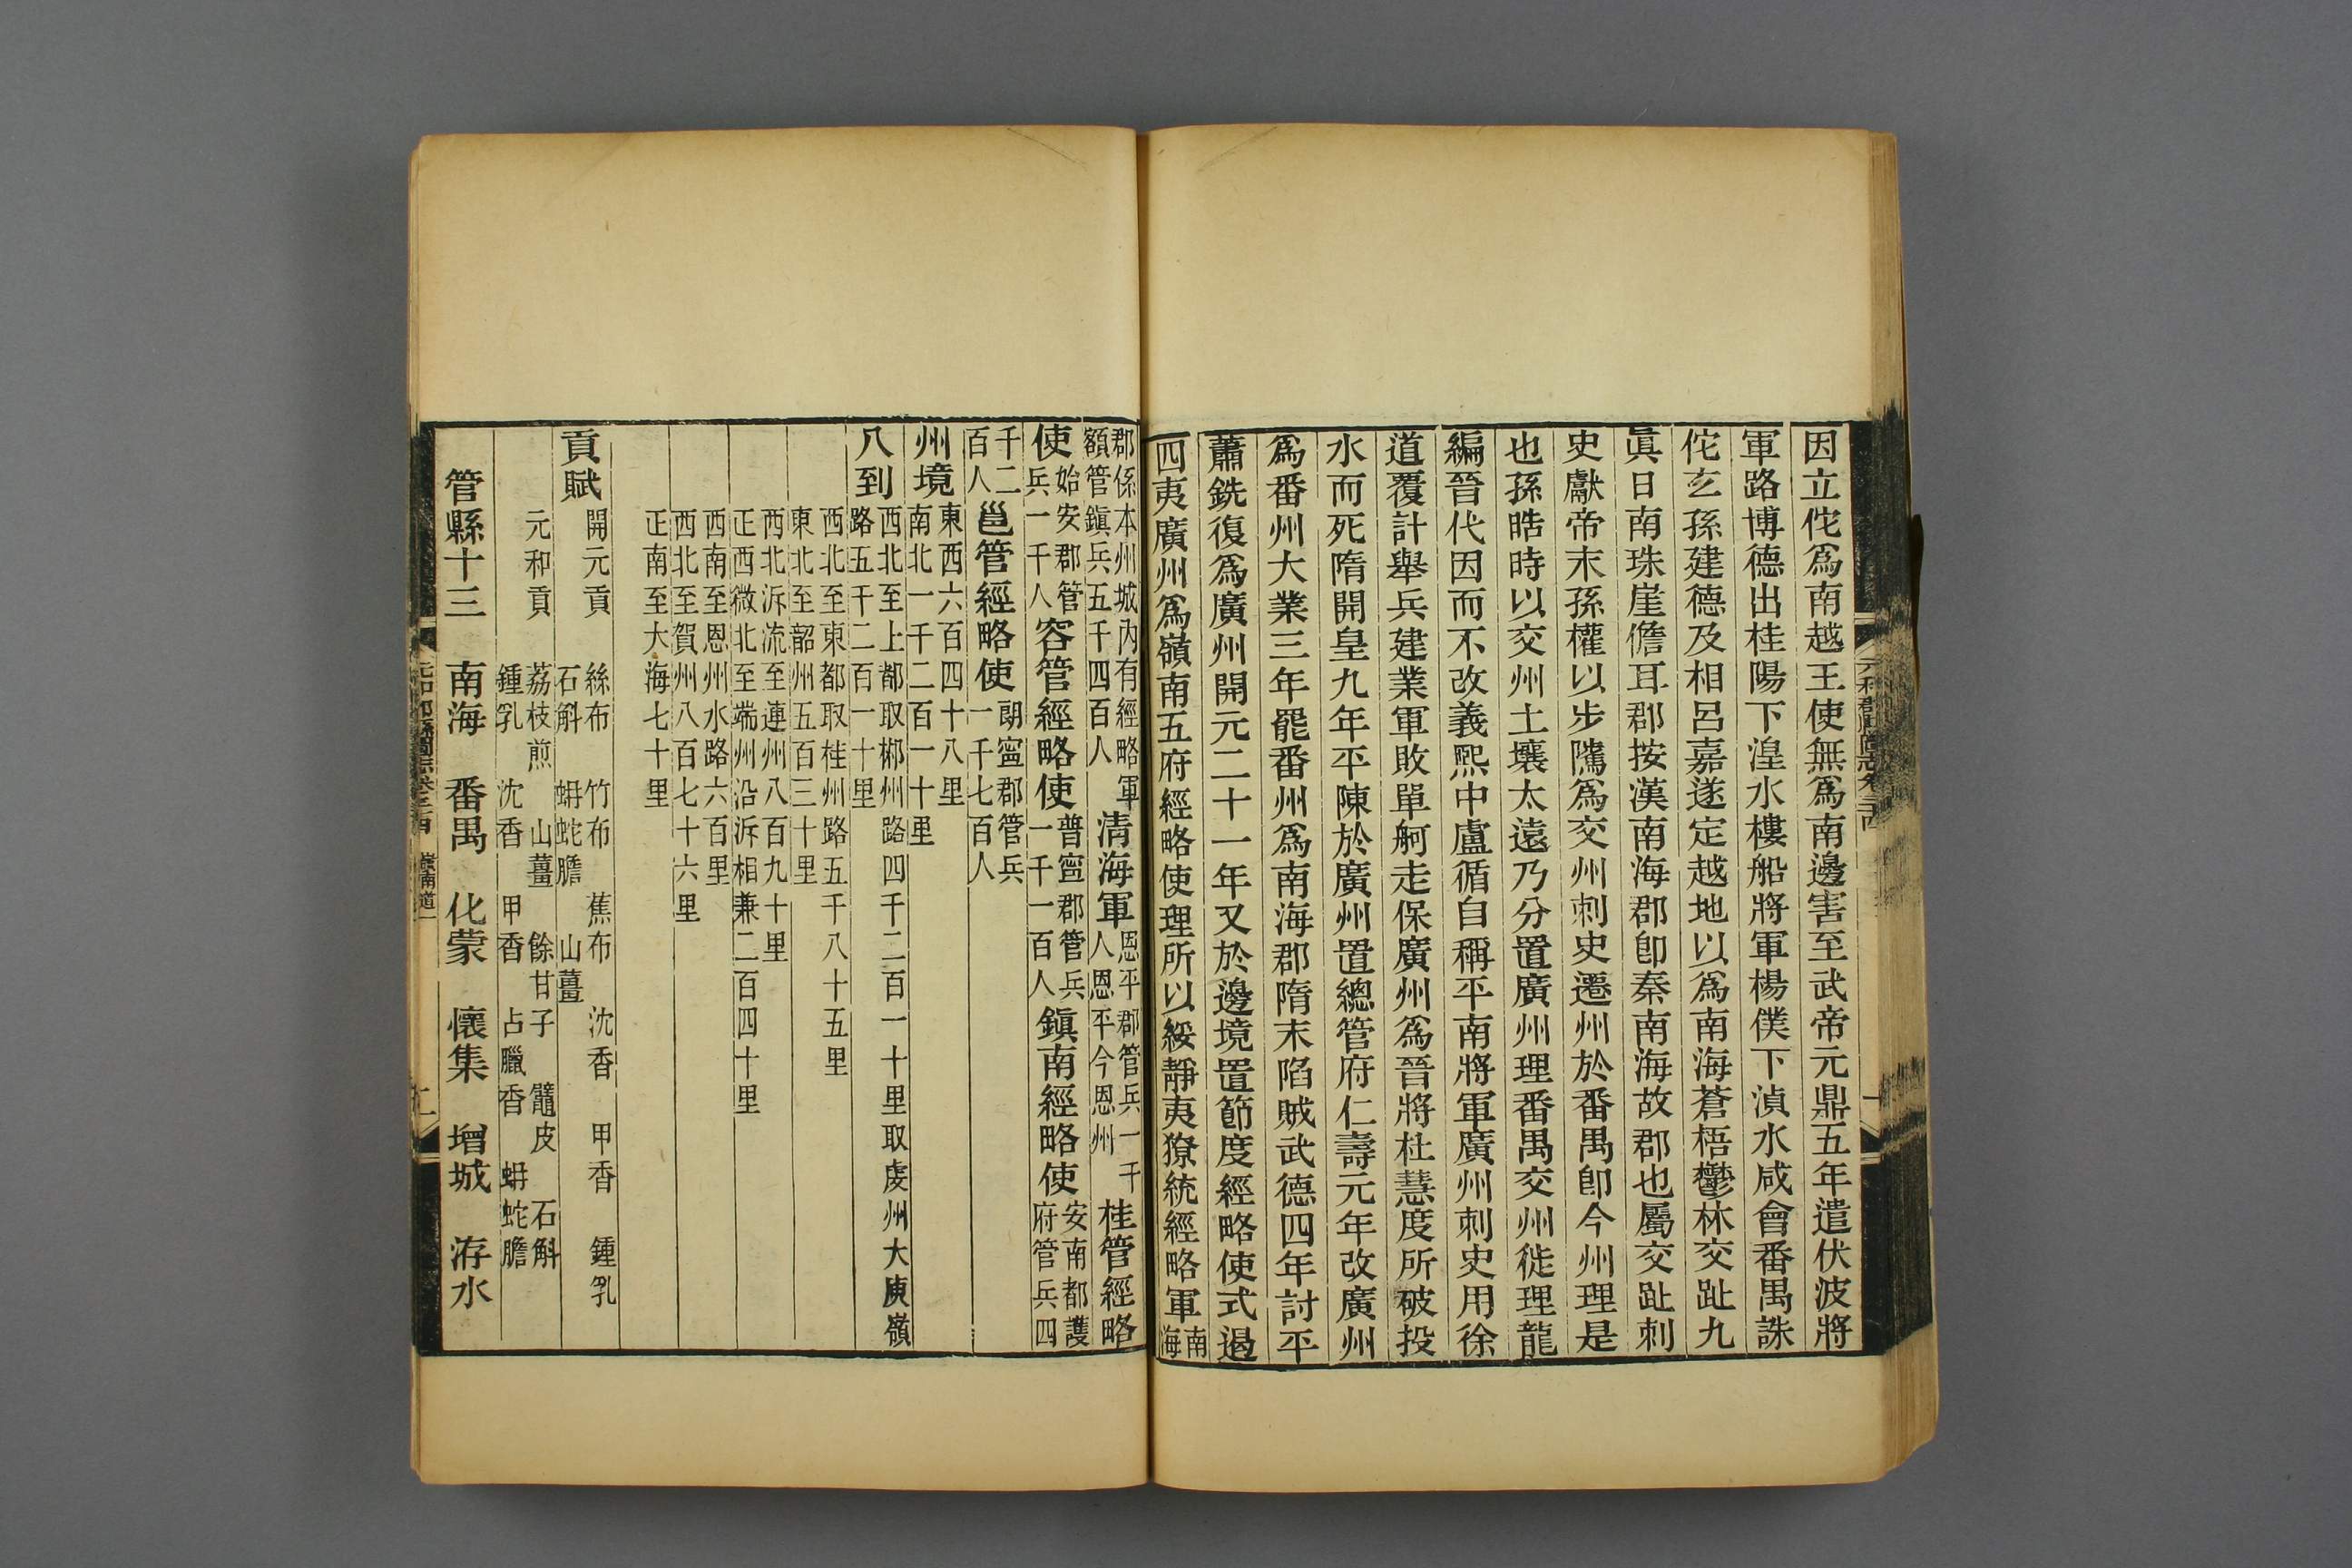 因立佗爲南越王使無爲南邊害至武帝元鼎五年遣伏波將
軍路博德出桂陽下湟水樓船將軍楊僕下湞水咸會番禺誅
佗玄孫建德及相呂嘉遂定越地以爲南海蒼梧鬱林交趾九
眞日南珠崖儋耳郡按漢南海郡卽秦南海故郡也屬交趾刺
史獻帝末孫權以步隲爲交州刺史遷州於番禺卽今州理是
也孫晧時以交州土壤太遠乃分置廣州理番禺交州徙理龍
編晉代因而不改義熙中盧循自稱平南將軍廣州刺史用徐
道覆計舉兵建業軍敗單舸走保廣州爲晉將杜慧度所破投
水而死隋開皇九年平陳於廣州置總管府仁壽元年改廣州
爲番州大業三年罷番州爲南海郡隋末陷賊武德四年討平
蕭銑復爲廣州開元二十一年又於邊境置節度經略使式遏
四夷廣州爲嶺南五府經略使理所以綏靜夷獠統經略軍南海
郡係本州城內有經略軍額管鎭兵五千四百人 淸海軍恩平郡管兵一千人恩平今恩州 桂管經略
使始安郡管兵一千人 容管經略使普寧郡管兵一千一百人 鎭南經略使安南都護府管兵四
千二百人 邕管經略使朗寧郡管兵一千七百人
州境東西六百四十八里南北一千二百一十里
八到西北至上都取郴州路四千二百一十里取虔州大庾嶺路五千二百一十里
西北至東都取桂州路五千八十五里
東北至韶州五百三十里
西北泝流至連州八百九十里
正西微北至端州沿泝相兼二百四十里
西南至恩州水路六百里
西北至賀州八百七十六里
正南至大海七十里
貢賦 開元貢 絲布 竹布 蕉布 沈香 甲香 鍾乳
石斛 蚺蛇膽 山薑
元和貢 荔枝煎 山薑 餘甘子 鼊皮 石斛
鍾乳 沈香 甲香 占臘香 蚺蛇膽
管縣十三 南海 番禺 化蒙 懷集 增城 洊水
嶺南道一